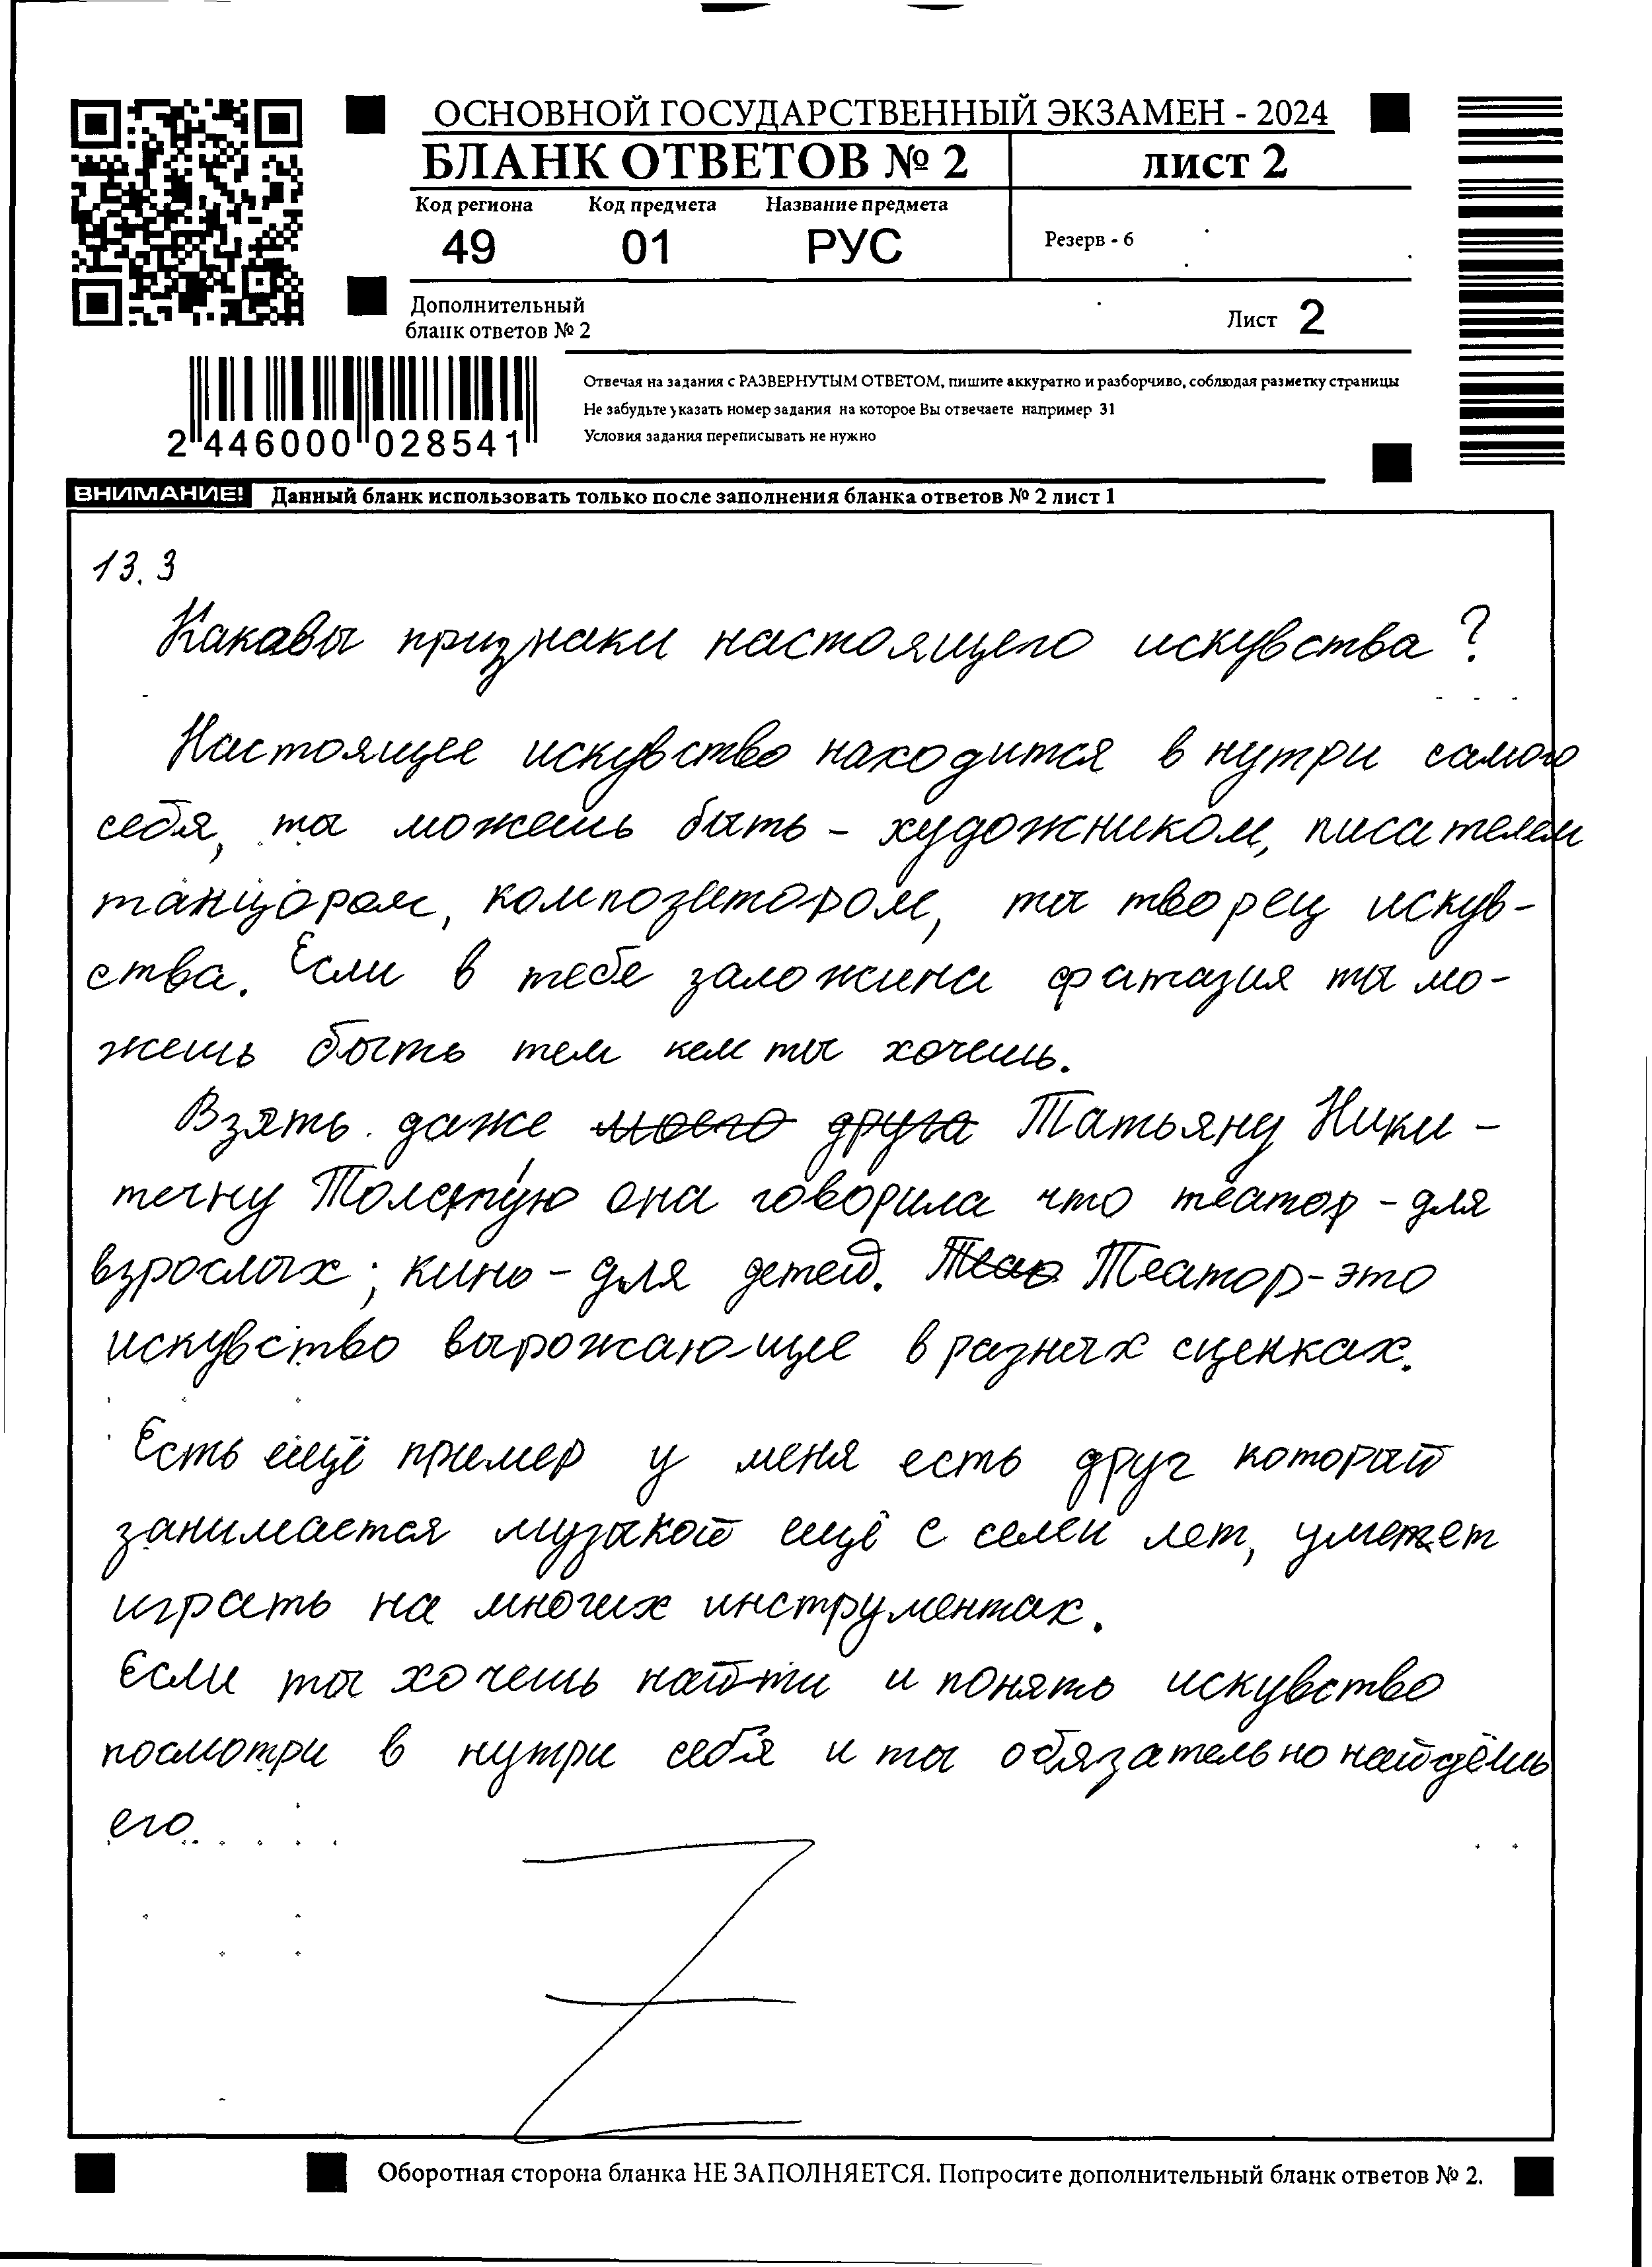 ОСНОВНОЙ ГОСУДАРСТВЕННЫЙ ЭКЗАМЕН - 2024
БЛАНК ОТВЕТОВ № 2
лист 2
Код региона Код предмета Название предмета
49 01 РУС
Резерв - 6
Дополнительный
бланк ответов № 2
Лист 2
Отвечая на задания с РАЗВЕРНУТЫМ ОТВЕТОМ, пишите аккуратно и разборчиво, соблюдая разметку страницы
Не забудьте указать номер задания на которое Вы отвечаете например 31
Условия задания переписывать не нужно
2 446000 028541
ВНИМАНИЕ! Данный бланк использовать только после заполнения бланка ответов № 2 лист 1
13.3
Какавы признаки настоящего искувства?
Настоящее искувство находится в нутри самого
себя, ты можешь быть - художником, писателем
танцором, композитором, ты творец искув-
ства. Если в тебе заложина фатазия ты мо-
жешь быть тем кем ты хочешь.
Взять даже моего друга Татьяну Ники-
течну Толстую она говорила что театор - для
взрослых; кино - для детей. Теао Театор - это
искувство вырожающее в разных сценках.
Есть ещё пример у меня есть друг который
занимается музыкой ещё с семи лет, умеет
играть на многих инструментах.
Если ты хочешь найти и понять искувство
посмотри в нутри себя и ты обязательно найдёшь
его.
Z
Оборотная сторона бланка НЕ ЗАПОЛНЯЕТСЯ. Попросите дополнительный бланк ответов № 2.